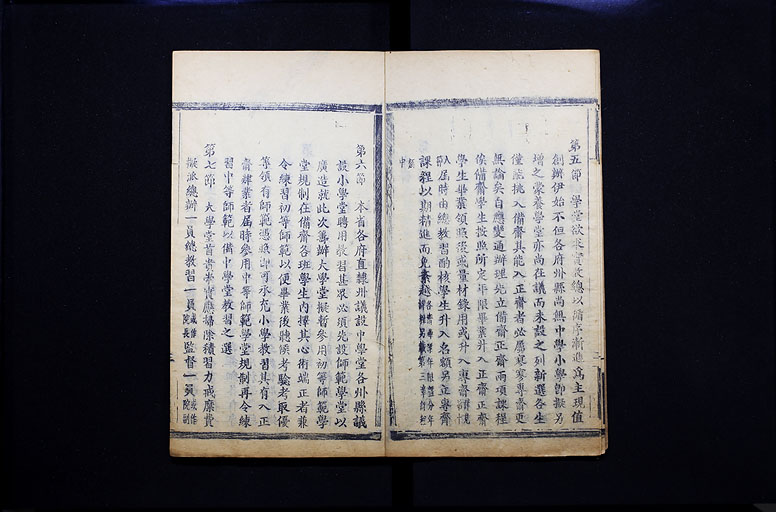 第五節 學堂欲求實效總以循序漸進爲主現值
創辦伊始不但各府州縣尚無中學小學卽擬另
增之蒙養學堂亦尚在議而未設之列新選各生
僅應挑入備齋其能入正齋者必屬寥寥專齋更
無論矣自應變通辦理先立備齋正齋兩項課程
俟備齋學生按照所定年限畢業升入正齋正齋
學生畢業領照後或量材錄用或升入專齋
人屆時由總教習酌核學生升入名額另立專齋
課程以期精進而免紊越
中
第六節 本省各府直隸州議設中學堂各州縣議
設小學堂聘用教習甚眾必須先設師範學堂以
廣造就此次籌辦大學堂擬暫參用初等師範學
堂規制在備齋各班學生內擇其心術端正者兼
令練習初等師範以便畢業後聽候考驗考取優
等領有師範憑照卽可承充小學教習其有入正
齋肄業者屆時參用中等師範學堂規制再令練
習中等師範以備中學堂教習之選
第七節 大學堂首貴崇實應掃除積習力戒糜費
擬派總辦一員總教習一員或作院長監督一員或作院副